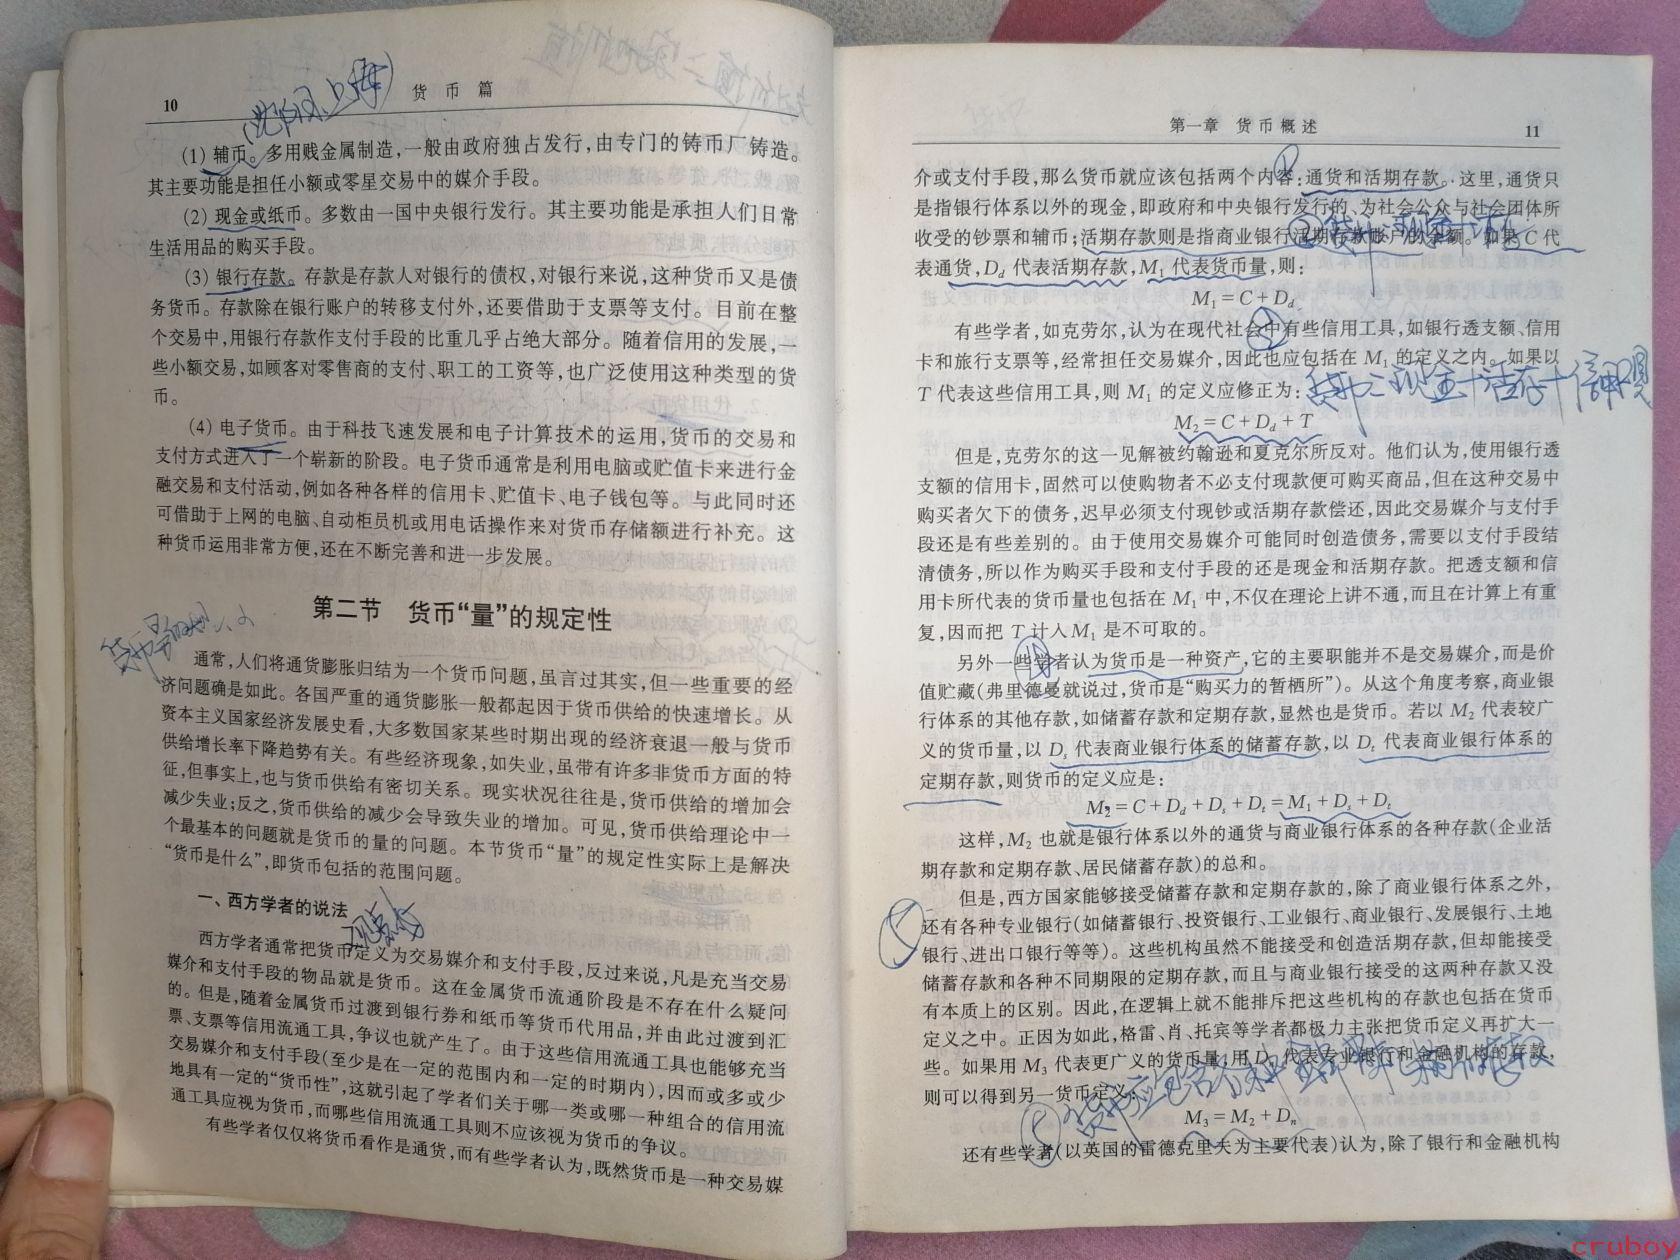 10
货币篇
(1) 辅币。多用贱金属制造,一般由政府独占发行,由专门的铸币厂铸造。
其主要功能是担任小额或零星交易中的媒介手段。
(2) 现金或纸币。多数由一国中央银行发行。其主要功能是承担人们日常
生活用品的购买手段。
(3) 银行存款。存款是存款人对银行的债权,对银行来说,这种货币又是债
务货币。存款除在银行账户的转移支付外,还要借助于支票等支付。目前在整
个交易中,用银行存款作支付手段的比重几乎占绝大部分。随着信用的发展,一
些小额交易,如顾客对零售商的支付、职工的工资等,也广泛使用这种类型的货
币。
(4) 电子货币。由于科技飞速发展和电子计算技术的运用,货币的交易和
支付方式进入了一个崭新的阶段。电子货币通常是利用电脑或贮值卡来进行金
融交易和支付活动,例如各种各样的信用卡、贮值卡、电子钱包等。与此同时还
可借助于上网的电脑、自动柜员机或用电话操作来对货币存储额进行补充。这
种货币运用非常方便,还在不断完善和进一步发展。
第二节 货币“量”的规定性
通常,人们将通货膨胀归结为一个货币问题,虽言过其实,但一些重要的经
济问题确是如此。各国严重的通货膨胀一般都起因于货币供给的快速增长。从
资本主义国家经济发展史看,大多数国家某些时期出现的经济衰退一般与货币
供给增长率下降趋势有关。有些经济现象,如失业,虽带有许多非货币方面的特
征,但事实上,也与货币供给有密切关系。现实状况往往是,货币供给的增加会
减少失业;反之,货币供给的减少会导致失业的增加。可见,货币供给理论中一
个最基本的问题就是货币的量的问题。本节货币“量”的规定性实际上是解决
“货币是什么”,即货币包括的范围问题。
一、西方学者的说法
西方学者通常把货币定义为交易媒介和支付手段,反过来说,凡是充当交易
媒介和支付手段的物品就是货币。这在金属货币流通阶段是不存在什么疑问
的。但是,随着金属货币过渡到银行券和纸币等货币代用品,并由此过渡到汇
票、支票等信用流通工具,争议也就产生了。由于这些信用流通工具也能够充当
交易媒介和支付手段(至少是在一定的范围内和一定的时期内),因而或多或少
地具有一定的“货币性”,这就引起了学者们关于哪一类或哪一种组合的信用流
通工具应视为货币,而哪些信用流通工具则不应该视为货币的争议。
有些学者仅仅将货币看作是通货,而有些学者认为,既然货币是一种交易媒
第一章 货币概述
11
介或支付手段,那么货币就应该包括两个内容:通货和活期存款。这里,通货只
是指银行体系以外的现金,即政府和中央银行发行的、为社会公众与社会团体所
收受的钞票和辅币;活期存款则是指商业银行活期存款账户的余额。如果 C 代
表通货,Dd 代表活期存款,M1 代表货币量,则:
M1=C+Dd
有些学者,如克劳尔,认为在现代社会中有些信用工具,如银行透支额、信用
卡和旅行支票等,经常担任交易媒介,因此也应包括在 M1 的定义之内。如果以
T 代表这些信用工具,则 M1 的定义应修正为:
货币=现金+活存+信用工具
M2=C+Dd+T
但是,克劳尔的这一见解被约翰逊和夏克尔所反对。他们认为,使用银行透
支额的信用卡,固然可以使购物者不必支付现款便可购买商品,但在这种交易中
购买者欠下的债务,迟早必须支付现钞或活期存款偿还,因此交易媒介与支付手
段还是有些差别的。由于使用交易媒介可能同时创造债务,需要以支付手段结
清债务,所以作为购买手段和支付手段的还是现金和活期存款。把透支额和信
用卡所代表的货币量也包括在 M1 中,不仅在理论上讲不通,而且在计算上有重
复,因而把 T 计人 M1 是不可取的。
另外一些学者认为货币是一种资产,它的主要职能并不是交易媒介,而是价
值贮藏(弗里德曼就说过,货币是“购买力的暂栖所”)。从这个角度考察,商业银
行体系的其他存款,如储蓄存款和定期存款,显然也是货币。若以 M2 代表较广
义的货币量,以 Ds 代表商业银行体系的储蓄存款,以 Dt 代表商业银行体系的
定期存款,则货币的定义应是:
M2=C+Dd+Ds+Dt=M1+Ds+Dt
这样,M2 也就是银行体系以外的通货与商业银行体系的各种存款(企业活
期存款和定期存款、居民储蓄存款)的总和。
但是,西方国家能够接受储蓄存款和定期存款的,除了商业银行体系之外,
还有各种专业银行(如储蓄银行、投资银行、工业银行、商业银行、发展银行、土地
银行、进出口银行等等)。这些机构虽然不能接受和创造活期存款,但却能接受
储蓄存款和各种不同期限的定期存款,而且与商业银行接受的这两种存款又没
有本质上的区别。因此,在逻辑上就不能排斥把这些机构的存款也包括在货币
定义之中。正因为如此,格雷、肖、托宾等学者都极力主张把货币定义再扩大一
些。如果用 M3 代表更广义的货币量,用 Dn 代表专业银行和金融机构的存款,
则可以得到另一货币定义:
M3=M2+Dn
还有些学者(以英国的雷德克里夫为主要代表)认为,除了银行和金融机构
cruboy